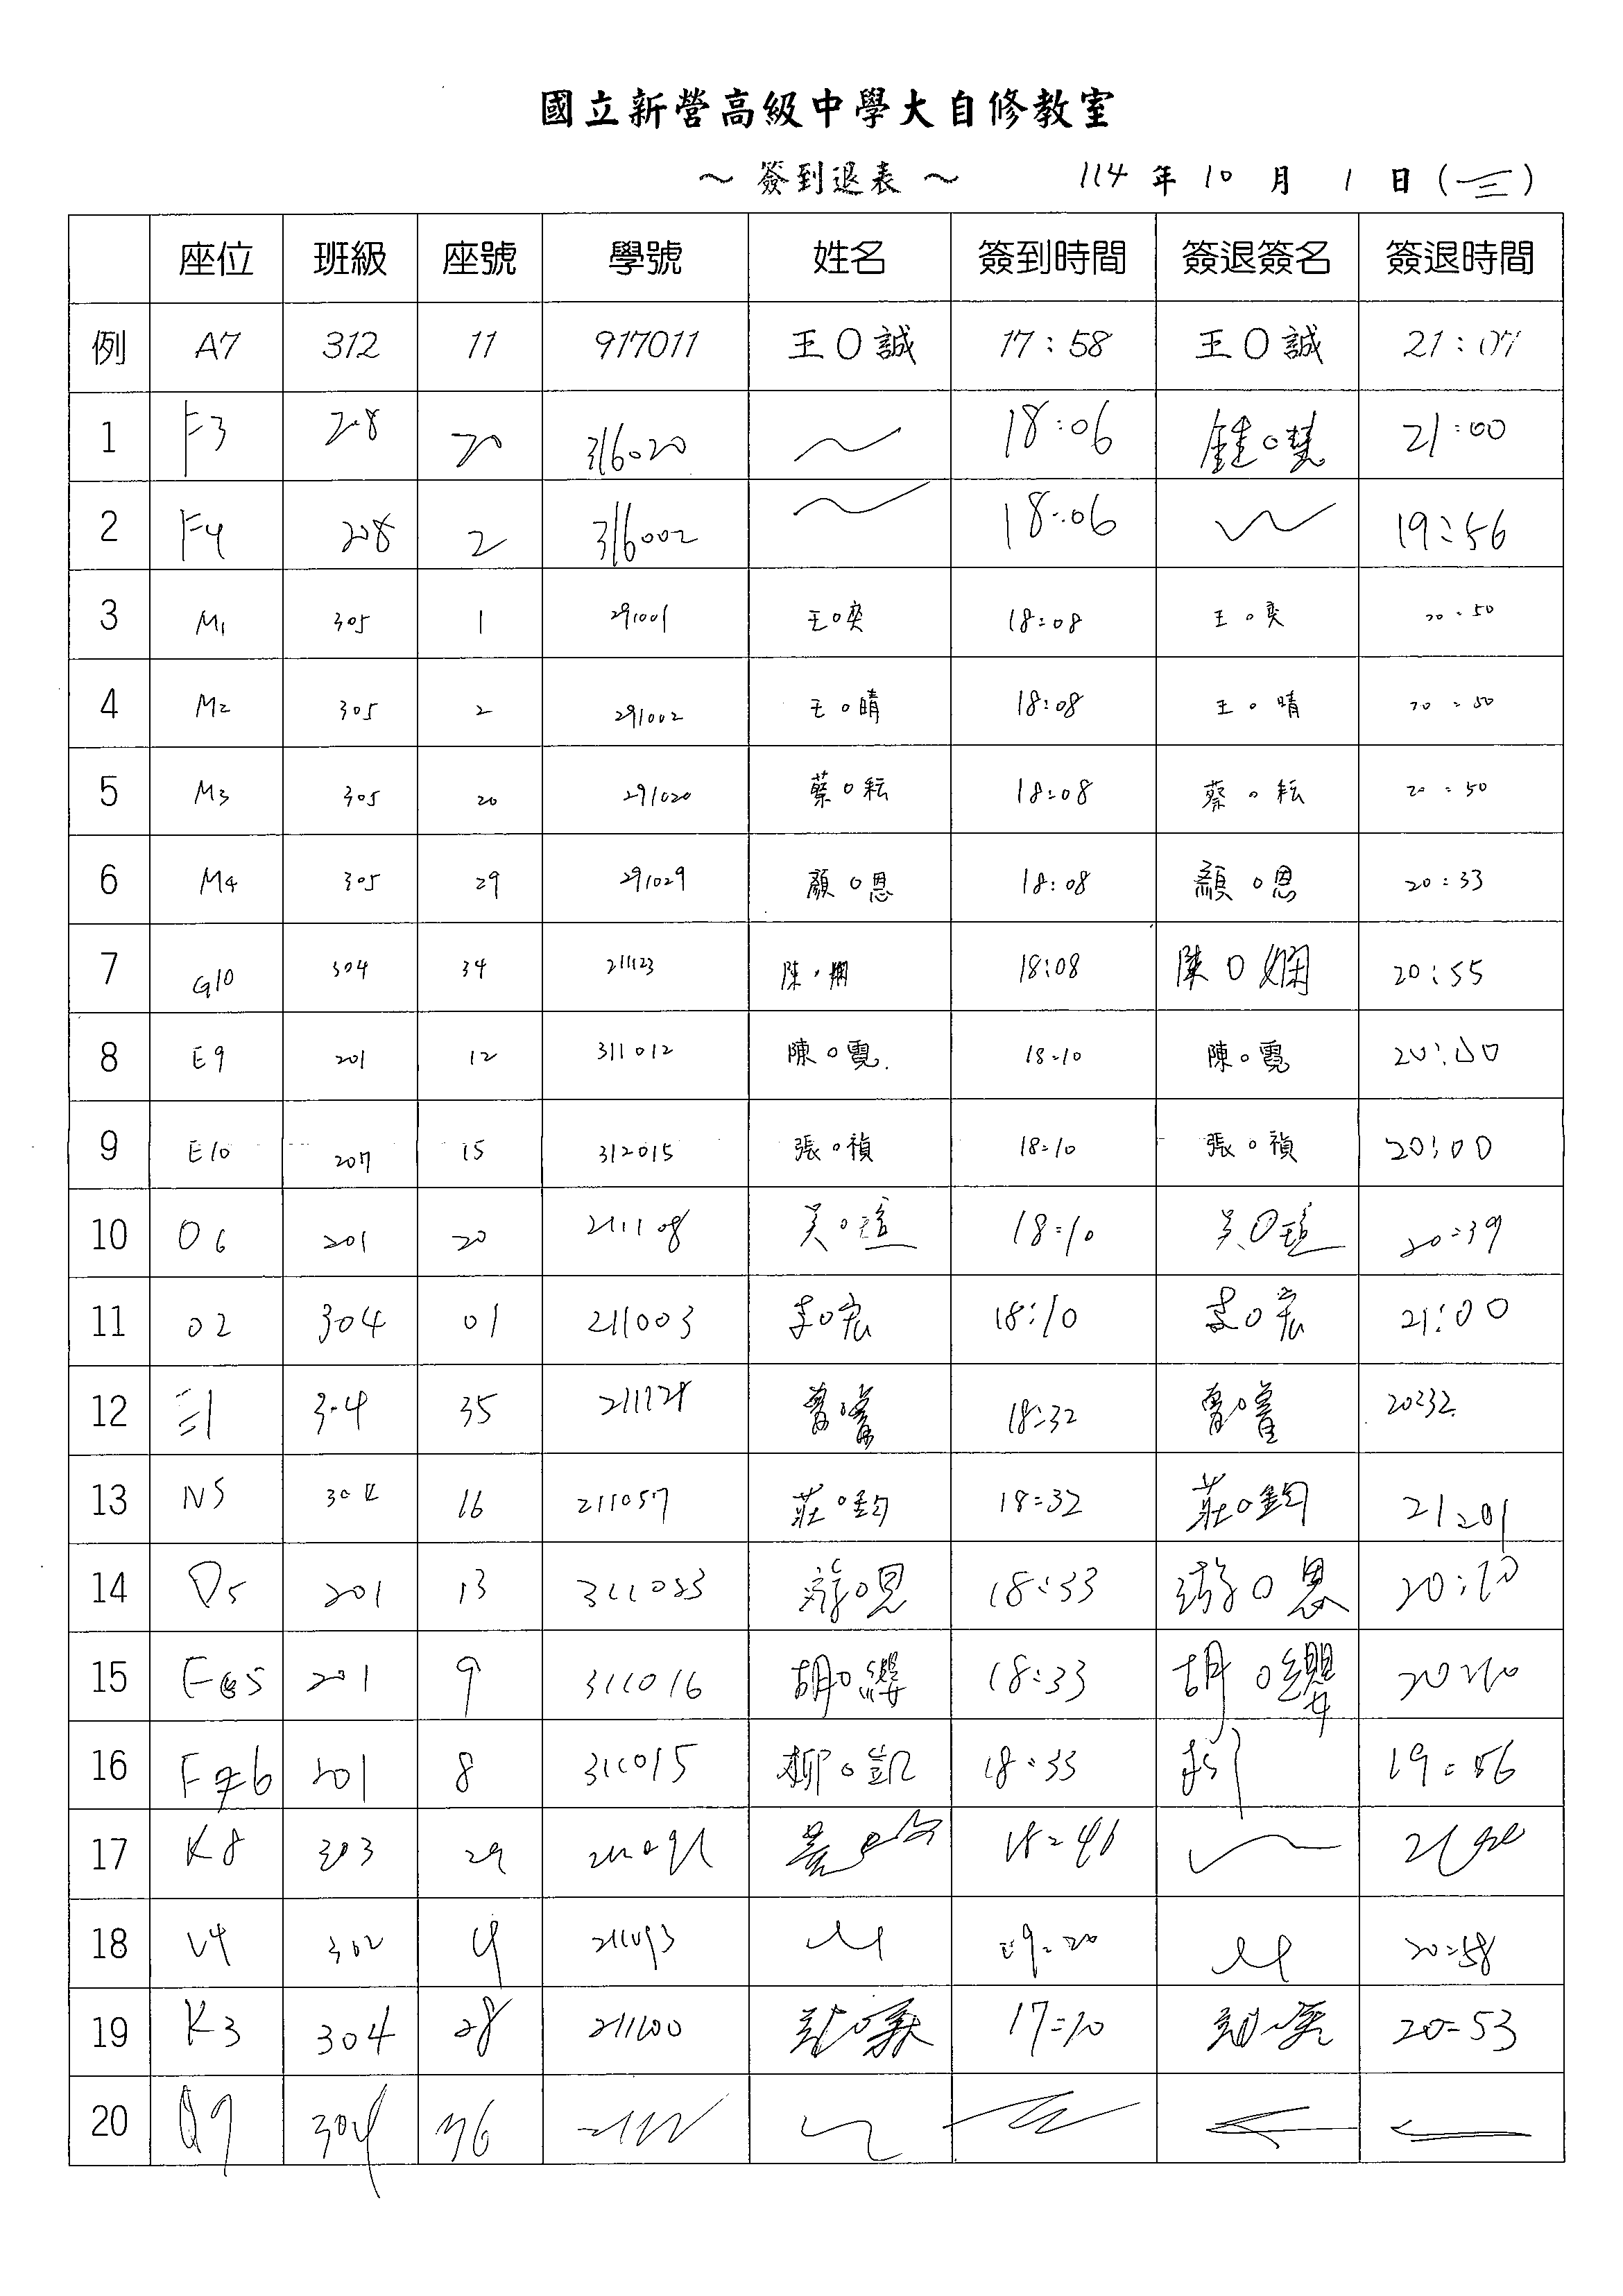 國立新營高級中學大自修教室
～ 簽到退表 ～ 114 年 10 月 1 日 (三)
座位 班級 座號 學號 姓名 簽到時間 簽退簽名 簽退時間
例 A7 312 11 917011 王O誠 17:58 王O誠 21:07
1 F3 208 20 316020 18:06 鍾O慧 21:00
2 F4 208 2 316002 18:06 19:56
3 M1 305 1 291001 王O奕 18:08 王O奕 20:50
4 M2 305 2 291002 王O晴 18:08 王O晴 20:50
5 M3 305 20 291020 蔡O耘 18:08 蔡O耘 20:50
6 M4 305 29 291029 顏O恩 18:08 顏O恩 20:33
7 G10 304 34 211123 陳O嫻 18:08 陳O嫻 20:55
8 E9 201 12 311012 陳O霓 18:10 陳O霓 20:00
9 E10 207 15 312015 張O禎 18:10 張O禎 20:00
10 O6 201 20 211108 吳O瑄 18:10 吳O瑄 20:39
11 O2 304 01 211003 李O宏 18:10 李O宏 21:00
12 E1 304 35 211128 曾O 18:32 曾O 20:32
13 N5 304 16 211057 莊O鈞 18:32 莊O鈞 21:01
14 D5 201 13 311023 游O恩 18:33 游O恩 20:10
15 F5 201 9 311016 胡O纓 18:33 胡O纓 20:10
16 F6 201 8 311015 柳O凱 18:33 19:56
17 K8 303 29 18:46
18 V4 302 4 211093 19:20 20:58
19 K3 304 28 211100 17:10 20:53
20 Q9 304 36